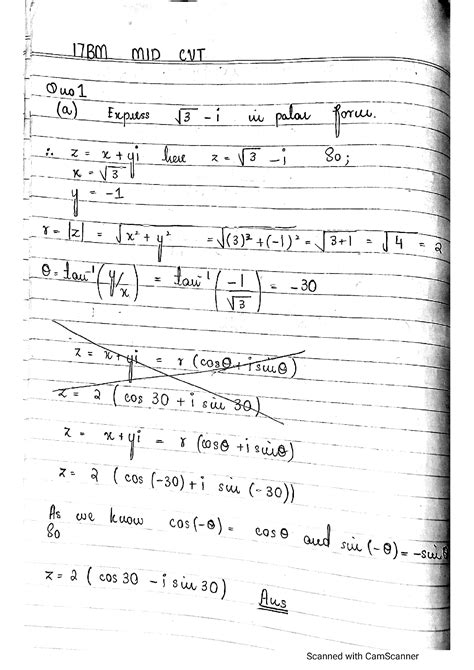 17BM MID CVT
Quo 1
(a) Express √3 - i in polar form.
∴ z = x + yi here z = √3 - i So;
x = √3
y = -1
r = |z| = √x² + y² = √(3)² + (-1)² = √3+1 = √4 = 2
θ = tan⁻¹ (y/x) = tan⁻¹ (-1/√3) = -30
z = x + yi = r (cosθ + i sinθ)
z = 2 ( cos 30 + i sin 30)
z = x + yi = r (cosθ + i sinθ)
z = 2 ( cos (-30) + i sin (-30))
As we know cos(-θ) = cosθ and sin (-θ) = -sinθ
So
z = 2 ( cos 30 - i sin 30)
Ans
Scanned with CamScanner